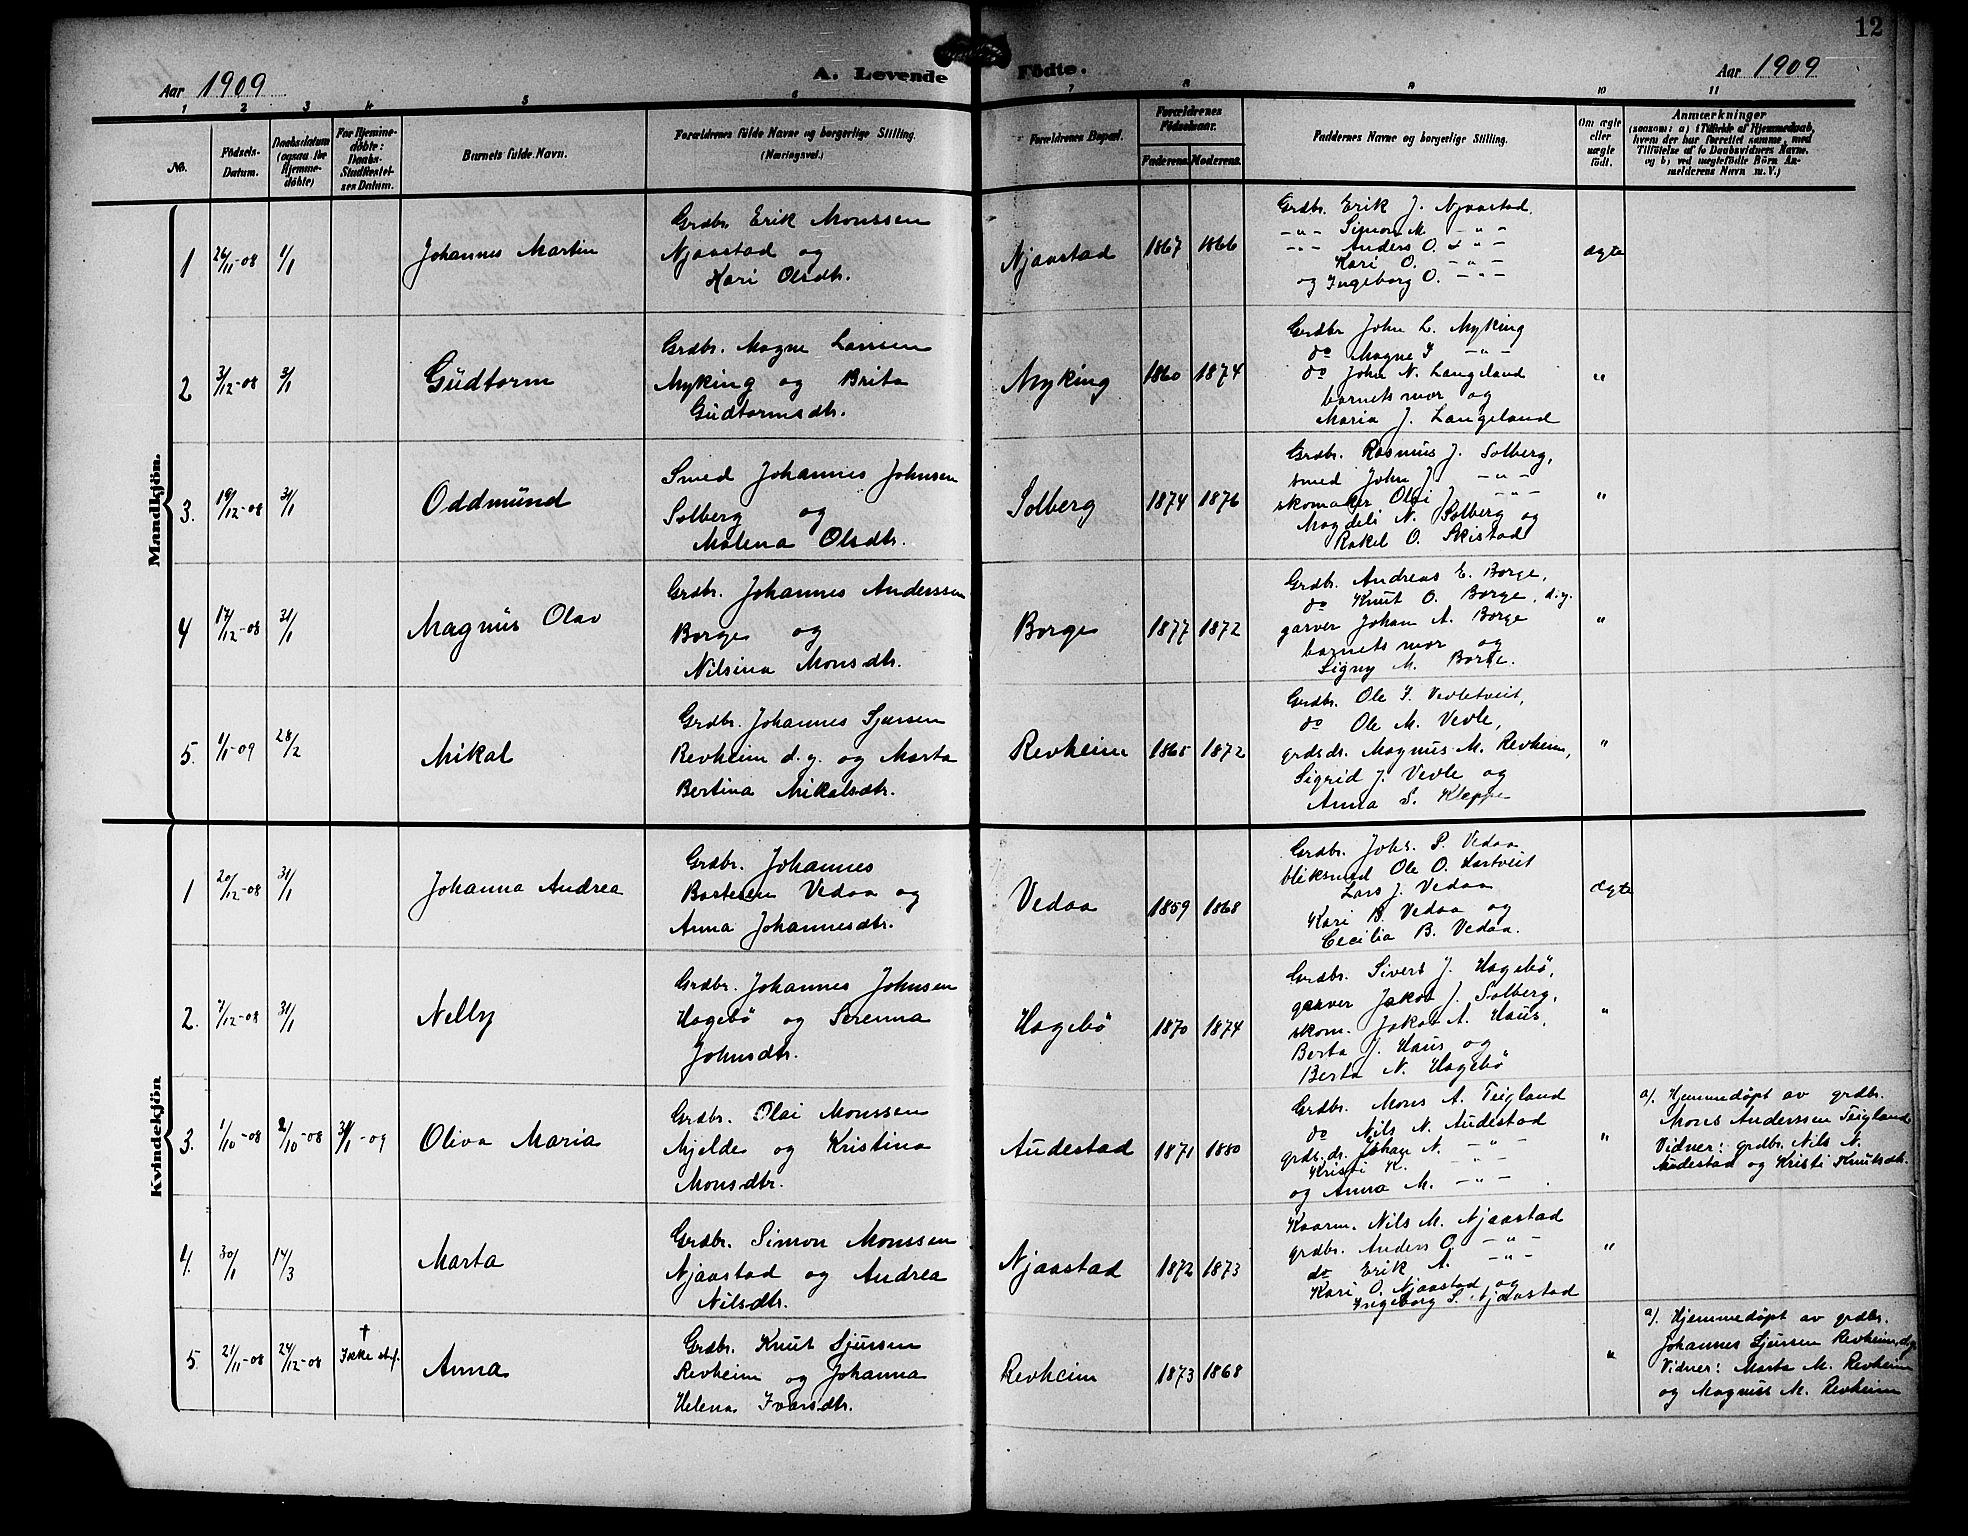 12
Aar 1909
A. Levende Födte.
Aar 1909
1 2 3 4 5 6 7 8 9 10 11
No.
Födsels-Datum.
Daabsdatum (ogsaa for Hjemme-döbte)
For Hjemme-döbte: Daabs-Stadfæstel-ses Datum.
Barnets fulde Navn.
Forældrenes fulde Navne og borgerlige Stilling. (Næringsvei.)
Forældrenes Bopæl.
Forældrenes Födselsaar.
Faderens. Moderens.
Faddernes Navne og borgerlige Stilling.
Om ægte eller uægte födt.
Anmærkninger
(saasom: a) i Tilfælde af Hjemmedaab,
hvem der har forrettet samme, med
Tilföielse af to Daabsvidners Navne.
og b) ved uægtefödte Börn An-
melderens Navn m. V.)
Mandkjön.
1 26/11-08 1/1 Johannes Martin
Grdbr. Erik Monssen
Njaastad og
Kari Olsdtr.
Njaastad 1867 1866
Grdbr. Erik J. Njaastad.
-"- Simon M. -"-
-"- Anders O. -"-
Kari O. -"-
og Ingeborg O. -"-
ægte
2 3/12-08 3/1 Gudtorm
Grdbr. Magne Larssen
Myking og Brita
Gudtormsdtr.
Myking 1860 1874
Grdbr John L. Myking
do Magne I -"-
do John N. Langeland
barnets mor og
Maria J. Langeland
"
3. 19/12-08 31/1 Oddmund
Smed Johannes Johnsen
Solberg og
Malena Olsdtr.
Solberg 1874 1876
Grdbr. Rasmus J. Solberg,
smed John J -"-
skomaker Olai J -"-
Magdeli N. Solberg og
Rakel O. Skistad
"
4 17/12-08 31/1 Magnus Olav
Grdbr. Johannes Anderssen
Borge og
Nilsina Monsdtr.
Borge 1877 1872
Grdbr. Andreas E. Borge,
do Knut O. Borge, d.y.
garver Johan A. Borge
barnets mor og
Signy M. Borge.
"
5. 1/1-09 28/2 Mikal
Grdbr. Johannes Sjursen
Revheim d.y. og Marta
Bertina Mikalsdtr.
Revheim 1865 1872
Grdbr. Ole I. Vevletveit,
do Ole M. Vevle,
grdsdr. Magnus M. Revheim,
Sigrid J. Vevle og
Anna S. Kleppe
"
Kvindekjön
1 20/12-08 31/1 Johanna Andrea
Grdbr. Johannes
Bortesen Vedaa og
Anna Johannesdtr.
Vedaa 1859 1868
Grdbr. Johs. P. Vedaa
bliksmed Ole O. Hartveit
Lars J. Vedaa
Kari B. Vedaa og
Cecilia B. Vedaa.
ægte
2. 7/12-08 31/1 Nelly
Grdbr. Johannes Johnsen
Hagebö og Serenna
Johnsdtr.
Hagebö 1870 1874
Grdbr. Sivert J. Hagebö,
garver Jakob J. Solberg,
skom. Jakob A. Haus,
Berta J. Haus og
Berta N. Hagebö
"
3. 1/10-08 2/10-08 31/1-09 Oliva Maria
Grdbr. Olai Monssen
Mjelde og Kristina
Monsdtr.
Audestad 1871 1880
Grdbr. Mons A. Teigland
do Nils N. Audestad
grdb.dr. Johan N. -"-
Kristi K. -"-
og Anna M. -"-
"
a). Hjemmedøpt av grdbr.
Mons Anderssen Teigland
Vidner: grdbr. Nils N.
Audestad og Kristi Knutsdtr.
4. 30/1 14/3 Marta
Grdbr. Simon Monssen
Njaastad og Andrea
Nilsdtr.
Njaastad 1872 1873
Kaarm. Nils M. Njaastad
grdbr. Anders O. -"-
do Erik A. -"-
Kari O. Njaastad og
Ingeborg S. Njaastad
"
5. 21/11-08 24/12-08 † Ikke st.f. Anna
Grdbr. Knut Sjursen
Revheim og Johanna
Helena Ivarsdtr.
Revheim 1873 1868
"
a). Hjemmedøpt av grdbr.
Johannes Sjursen Revheim, d.y.
Vidner: Marta M. Revheim
og Magnus M. Revheim